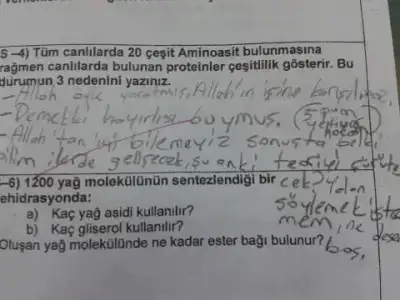 S -4) Tüm canlılarda 20 çeşit Aminoasit bulunmasına
rağmen canlılarda bulunan proteinler çeşitlilik gösterir. Bu
durumun 3 nedenini yazınız.
- Allah öyle yaratmış, Allah'ın işine karışılmaz.
- Demekki hayırlısı buymuş. (3 puan
yetiyor
hocam)
- Allah'tan iyi bilemeyiz sonuçta belki
bilim ilerde gelişecek, şu anki teoriyi çürüte
cek? Yalan
söylemek iste
mem, ne desem
boş.
-6) 1200 yağ molekülünün sentezlendiği bir
ehidrasyonda:
a) Kaç yağ asidi kullanılır?
b) Kaç gliserol kullanılır?
Oluşan yağ molekülünde ne kadar ester bağı bulunur?